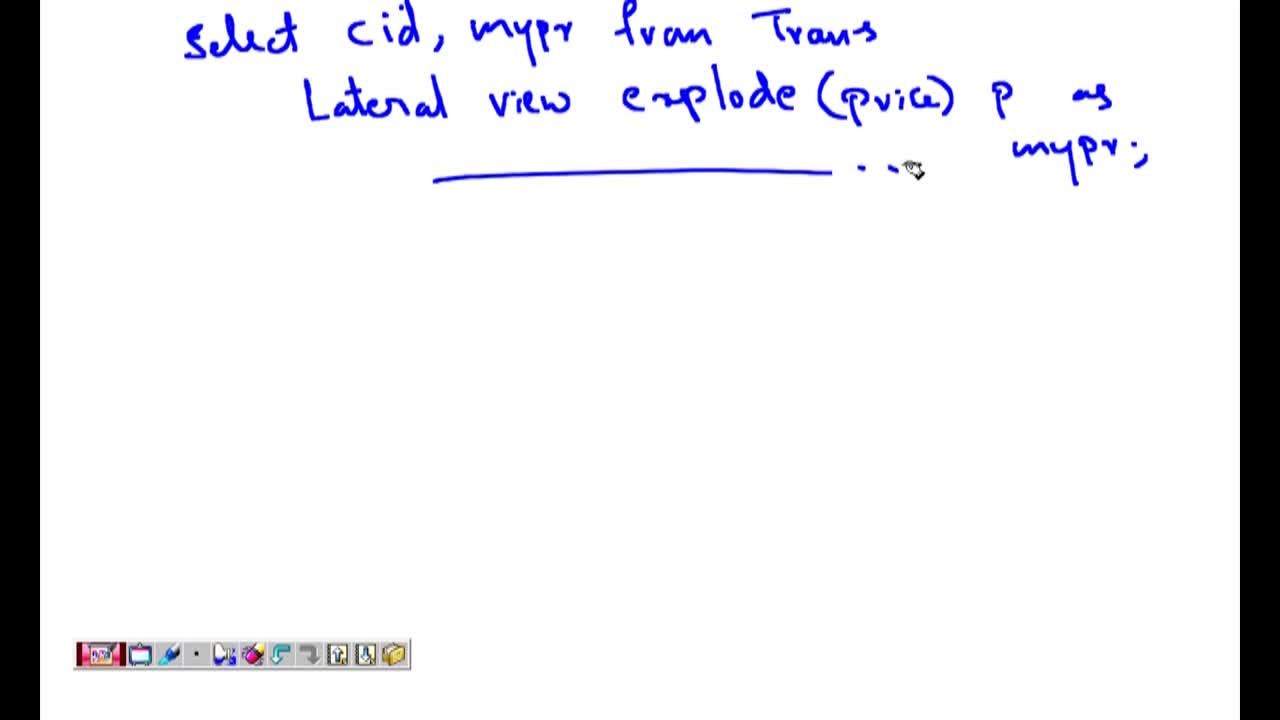 Select cid, mypr from Trans
Lateral view explode (price) p as
mypr;